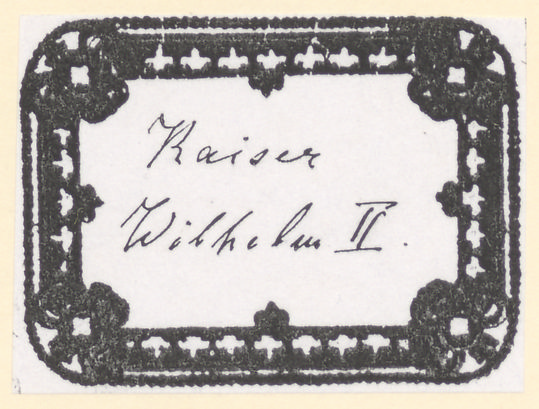 Kaiser
Wilhelm II.